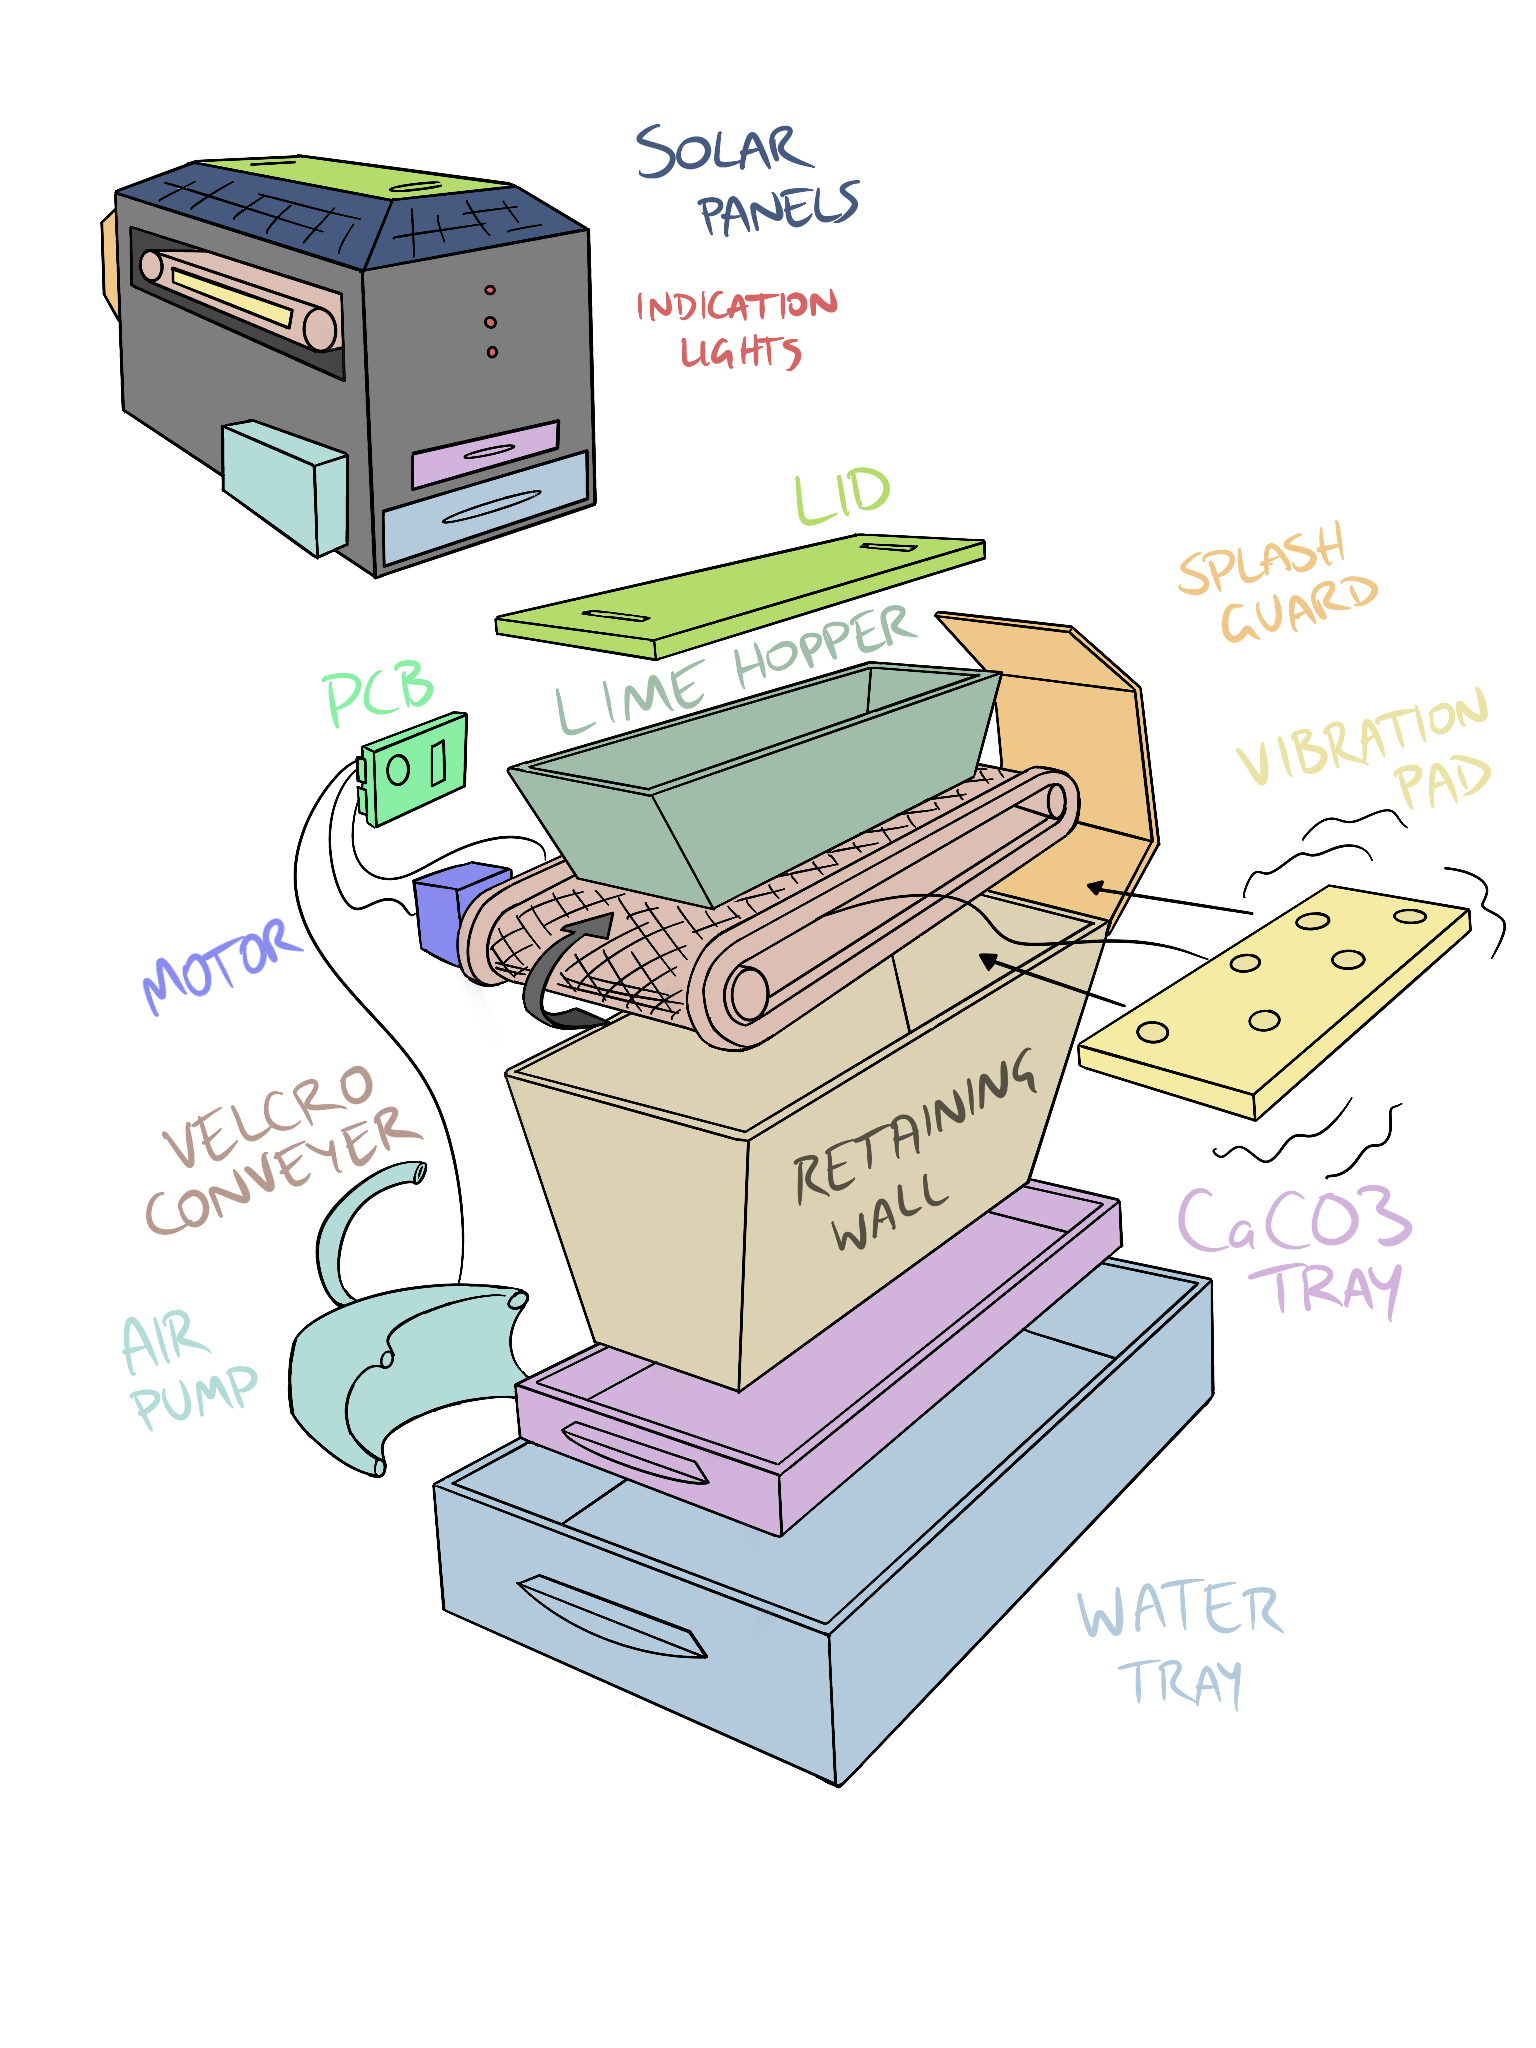 SOLAR
PANELS
INDICATION
LIGHTS
LID
SPLASH
GUARD
LIME HOPPER
PCB
VIBRATION
PAD
MOTOR
VELCRO
CONVEYER
RETAINING
WALL
CaCO3
TRAY
AIR
PUMP
WATER
TRAY